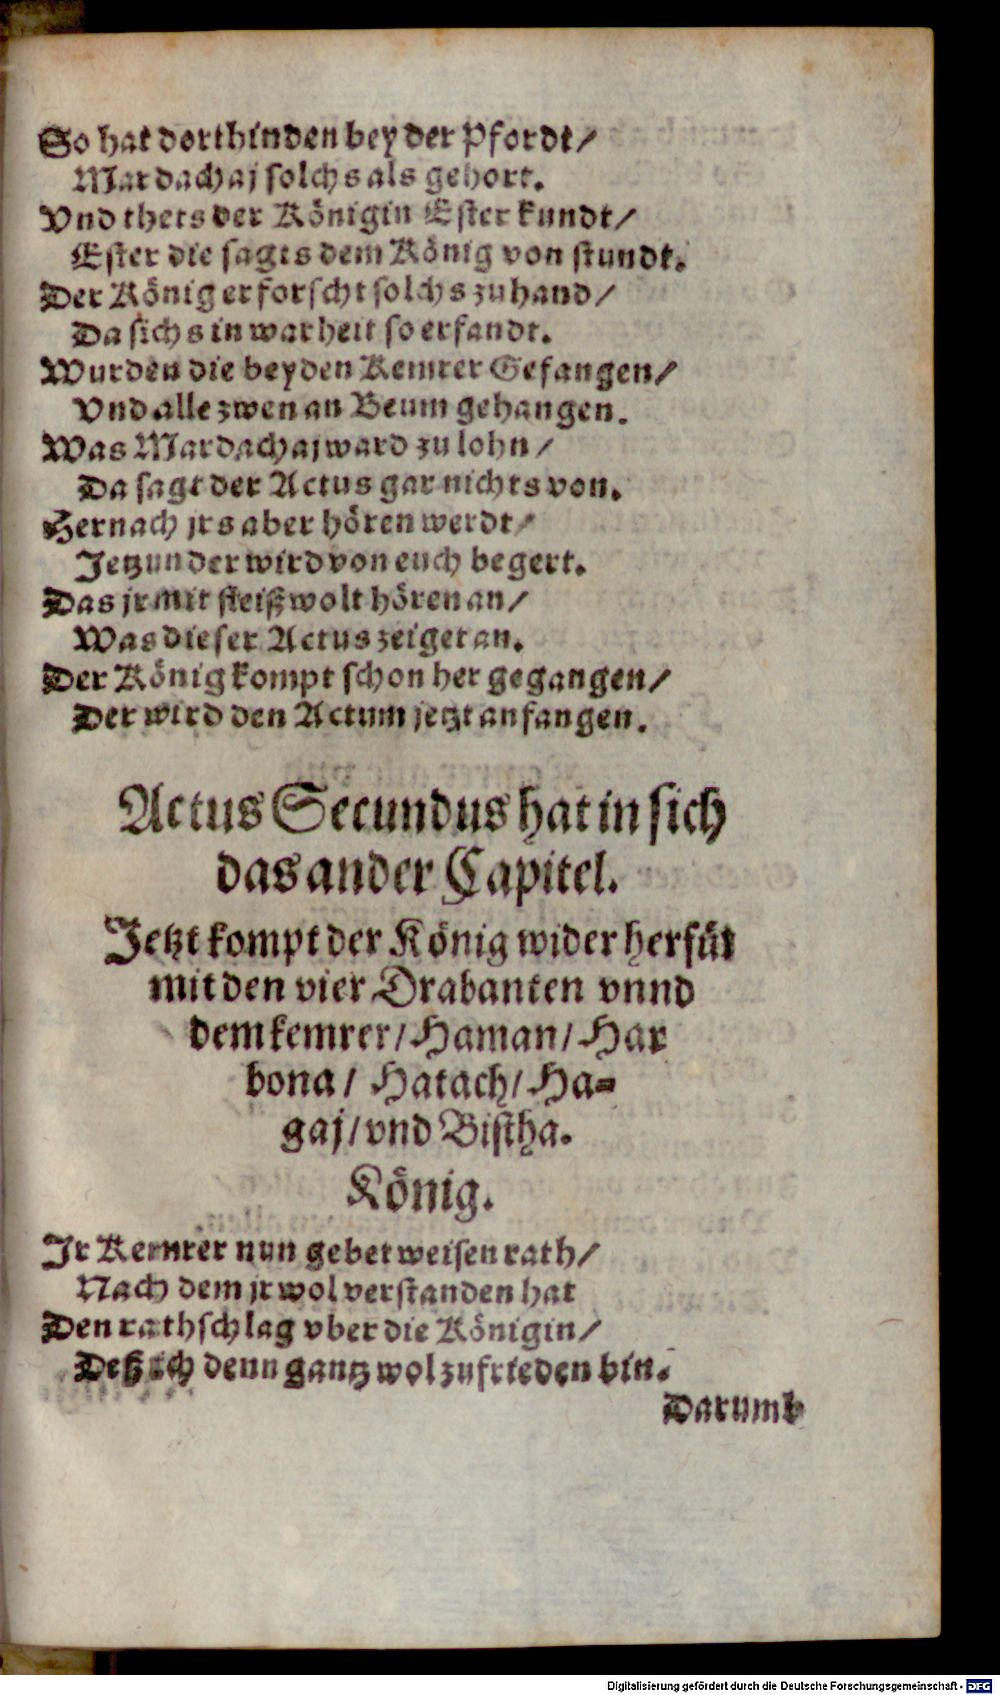 So hat dorthinden bey der Pfordt/
Mardachaj solchs als gehort.
Vnd thets der Königin Ester kundt/
Ester die sagts dem König von stundt.
Der König erforscht solchs zuhand/
Da sichs in warheit so erfandt.
Wurden die beyden Kemrer Gefangen/
Vnd alle zwen an Beum gehangen.
Was Mardachaj ward zu lohn/
Da sagt der Actus gar nichts von.
Hernach jrs aber hören werdt/
Jetzunder wird von euch begert.
Das jr mit fleiß wolt hören an/
Was dieser Actus zeiget an.
Der König kompt schon her gegangen/
Der wird den Actum jetzt anfangen.
Actus Secundus hat in sich
das ander Capitel.
Jetzt kompt der König wider herfür
mit den vier Drabanten vnnd
dem kemrer/ Haman/ Har
bona/ Hatach/ Ha-
gaj/ vnd Bistha.
König.
Jr Kemrer nun gebet weisen rath/
Nach dem jr wol verstanden hat
Den rathschlag vber die Königin/
Deß ich denn gantz wol zufrieden bin.
Darumb
Digitalisierung gefördert durch die Deutsche Forschungsgemeinschaft - DFG